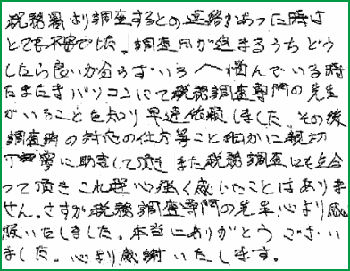 税務署より調査するとの連絡があった時は
とても不安でした。調査日が迫まるうちどう
したら良いか分らずいろ〳〵悩んでいる時
たまたまパソコンにて税務調査専門の先生
がいることを知り早速依頼しました。その後
調査時の対応の仕方等こと細かに親切
丁寧に助言して頂き また税務調査にも立合
って頂き これ程心強く感じたことはありま
せん。さすが税務調査専門の先生 心より感
服いたしました。本当にありがとうございい
ました。心より感謝いたします。